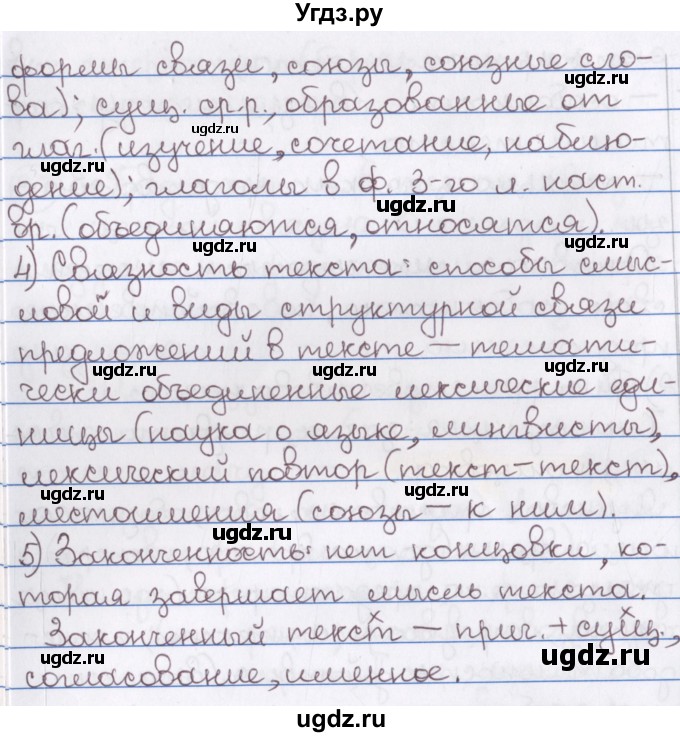 Угдз.ру
формы связи, союзы, союзные сло-
ва); сущ. ср.р., образованные от
глаг. (изучение, сочетание, наблю-
дение); глаголы в ф. 3-го л. наст.
вр. (объединяются, относятся).
4) Связность текста: способы смыс-
ловой и виды структурной связи
предложений в тексте — темати-
чески объединенные лексические еди-
ницы (наука о языке, лингвисты),
лексический повтор (текст – текст),
местоимения (союзы — к ним).
5) Законченность: нет концовки, ко-
торая завершает мысль текста.
х х
Законченный текст — прич. + сущ.,
согласование, именное.
ugdz.ru